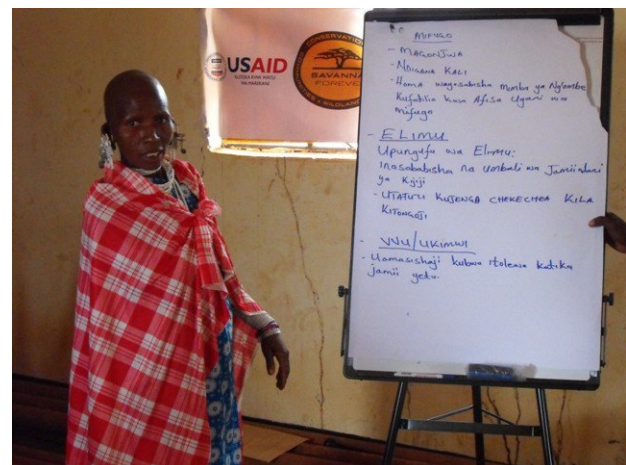 USAID
KUTOKA KWA WATU
WA MAREKANI
CONSERVATION
SAVANNA
FOREVER
MIFUGO
- MAGONJWA
- NDIGANA KALI
- Homa Mimba ya Ng'ombe
Kufabilia kwa Afisa Ugani wa
mifugo
- ELIMU
Upungufu wa Elimu:
inasababisha na Umbali wa Jamii ndani
ya Kijiji
- UTATUZI KUJENGA CHEKECHEA KILA
KITONGOJI
- VVU/UKIMWI
- Uamasishaji kubwa itolewa katika
jamii yetu.